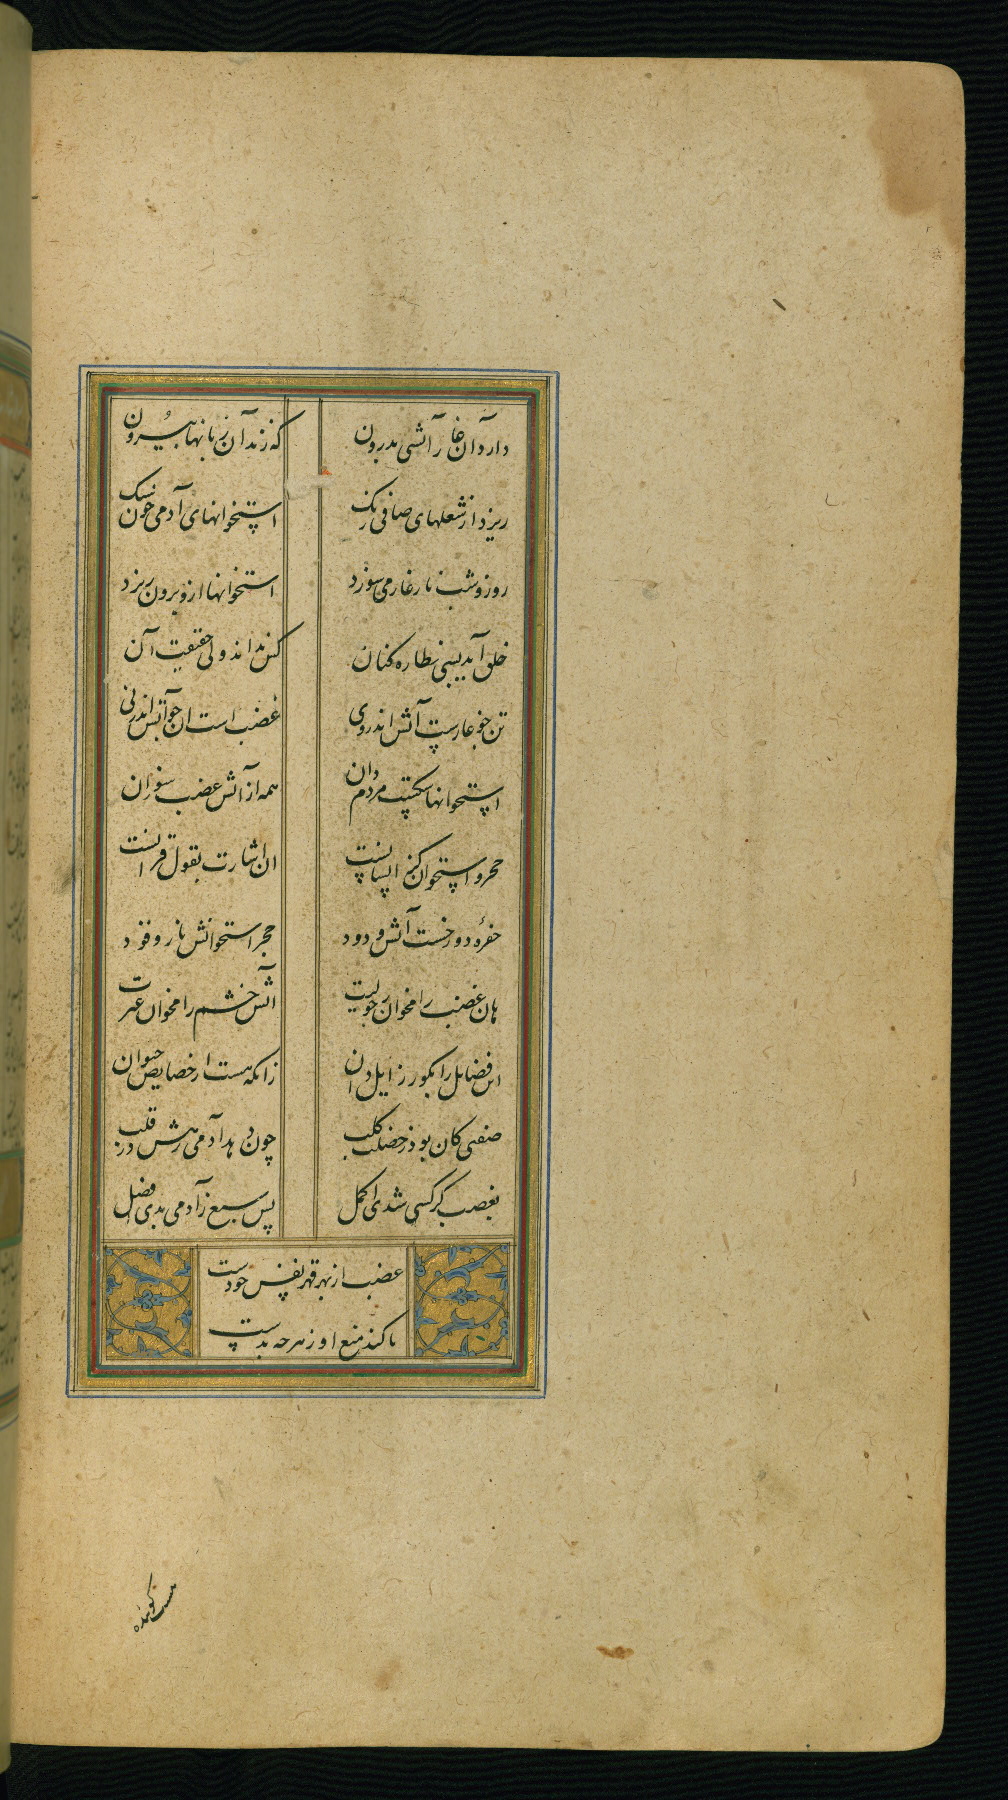 دارد آن غار آتشی بدرون
که زند آن زبانها بیرون
ریزد از شعلهای صافی رنک
استخوانهای آدمی چون سنک
روز و شب نار غار می سوزد
استخوانها ازو برون ریزد
خلق آید پی نظاره کنان
کس نداند ولی حقیقت آن
تن چو غارست آتش اندر وی
غضب است آن چو آتش اندر نی
استخوانها مردم دان
همه از آتش غضب سوزان
حجر و استخوان کز
ان اشارت بقول قرانست
حفرهٔ دوزخست آتش و دود
حجر استخوانش نار وقود
هان غضب را مخوان رجولیت
آتش خشم را مخوان غیرت
این فضایل را بکو رذایل دان
زانکه هست از خصایص حیوان
صفتی کان بود ز خصلت کلب
چون دهد آدمی رهش در قلب
بغضب کر کسی شدی اکمل
پس سبع ز آدمی بدی افضل
غضب از بهر قهر نفس خودست
تا کند منع او ز هر چه بدست
هست کوینده